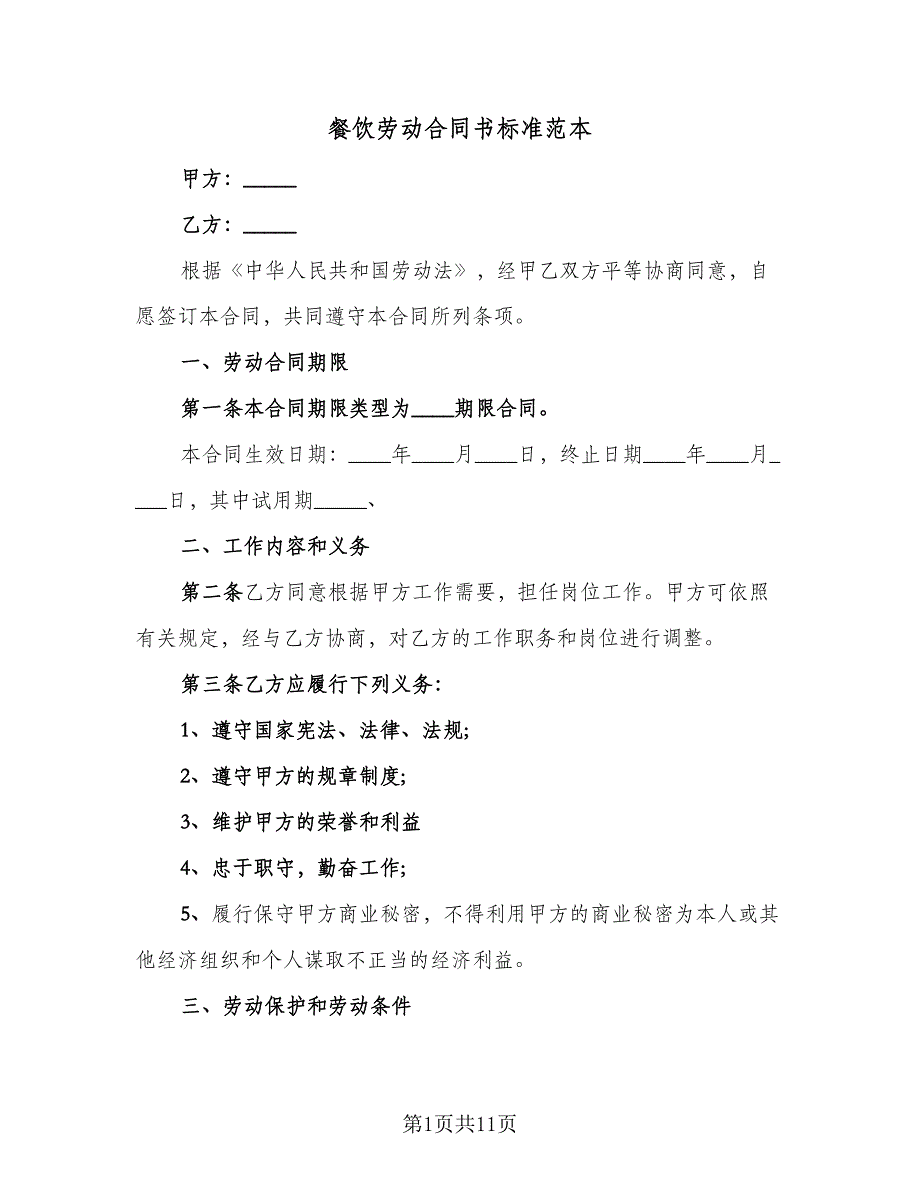 餐饮劳动合同书标准范本
甲方：_____
乙方：_____
根据《中华人民共和国劳动法》，经甲乙双方平等协商同意，自
愿签订本合同，共同遵守本合同所列条项。
一、劳动合同期限
第一条本合同期限类型为____期限合同。
本合同生效日期：____年____月____日，终止日期____年____月_
___日，其中试用期_____、
二、工作内容和义务
第二条乙方同意根据甲方工作需要，担任岗位工作。甲方可依照
有关规定，经与乙方协商，对乙方的工作职务和岗位进行调整。
第三条乙方应履行下列义务：
1、遵守国家宪法、法律、法规；
2、遵守甲方的规章制度；
3、维护甲方的荣誉和利益
4、忠于职守，勤奋工作；
5、履行保守甲方商业秘密，不得利用甲方的商业秘密为本人或其
他经济组织和个人谋取不正当的经济利益。
三、劳动保护和劳动条件
第1页共11页